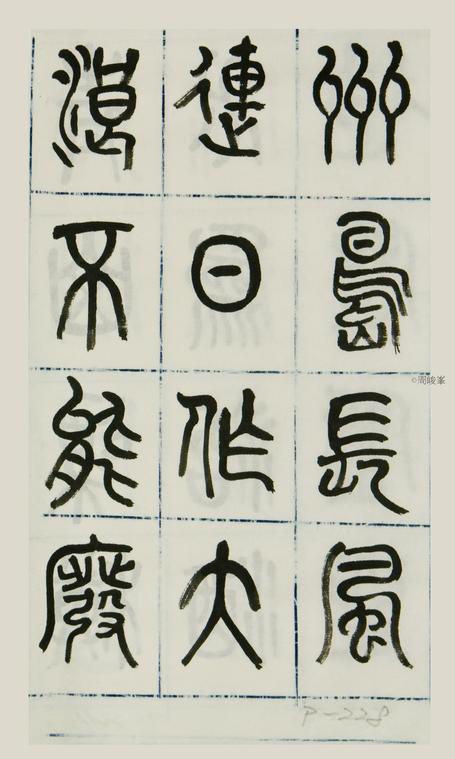 州島長風
連日作大
浪不能廢
P-228
©周峻峯